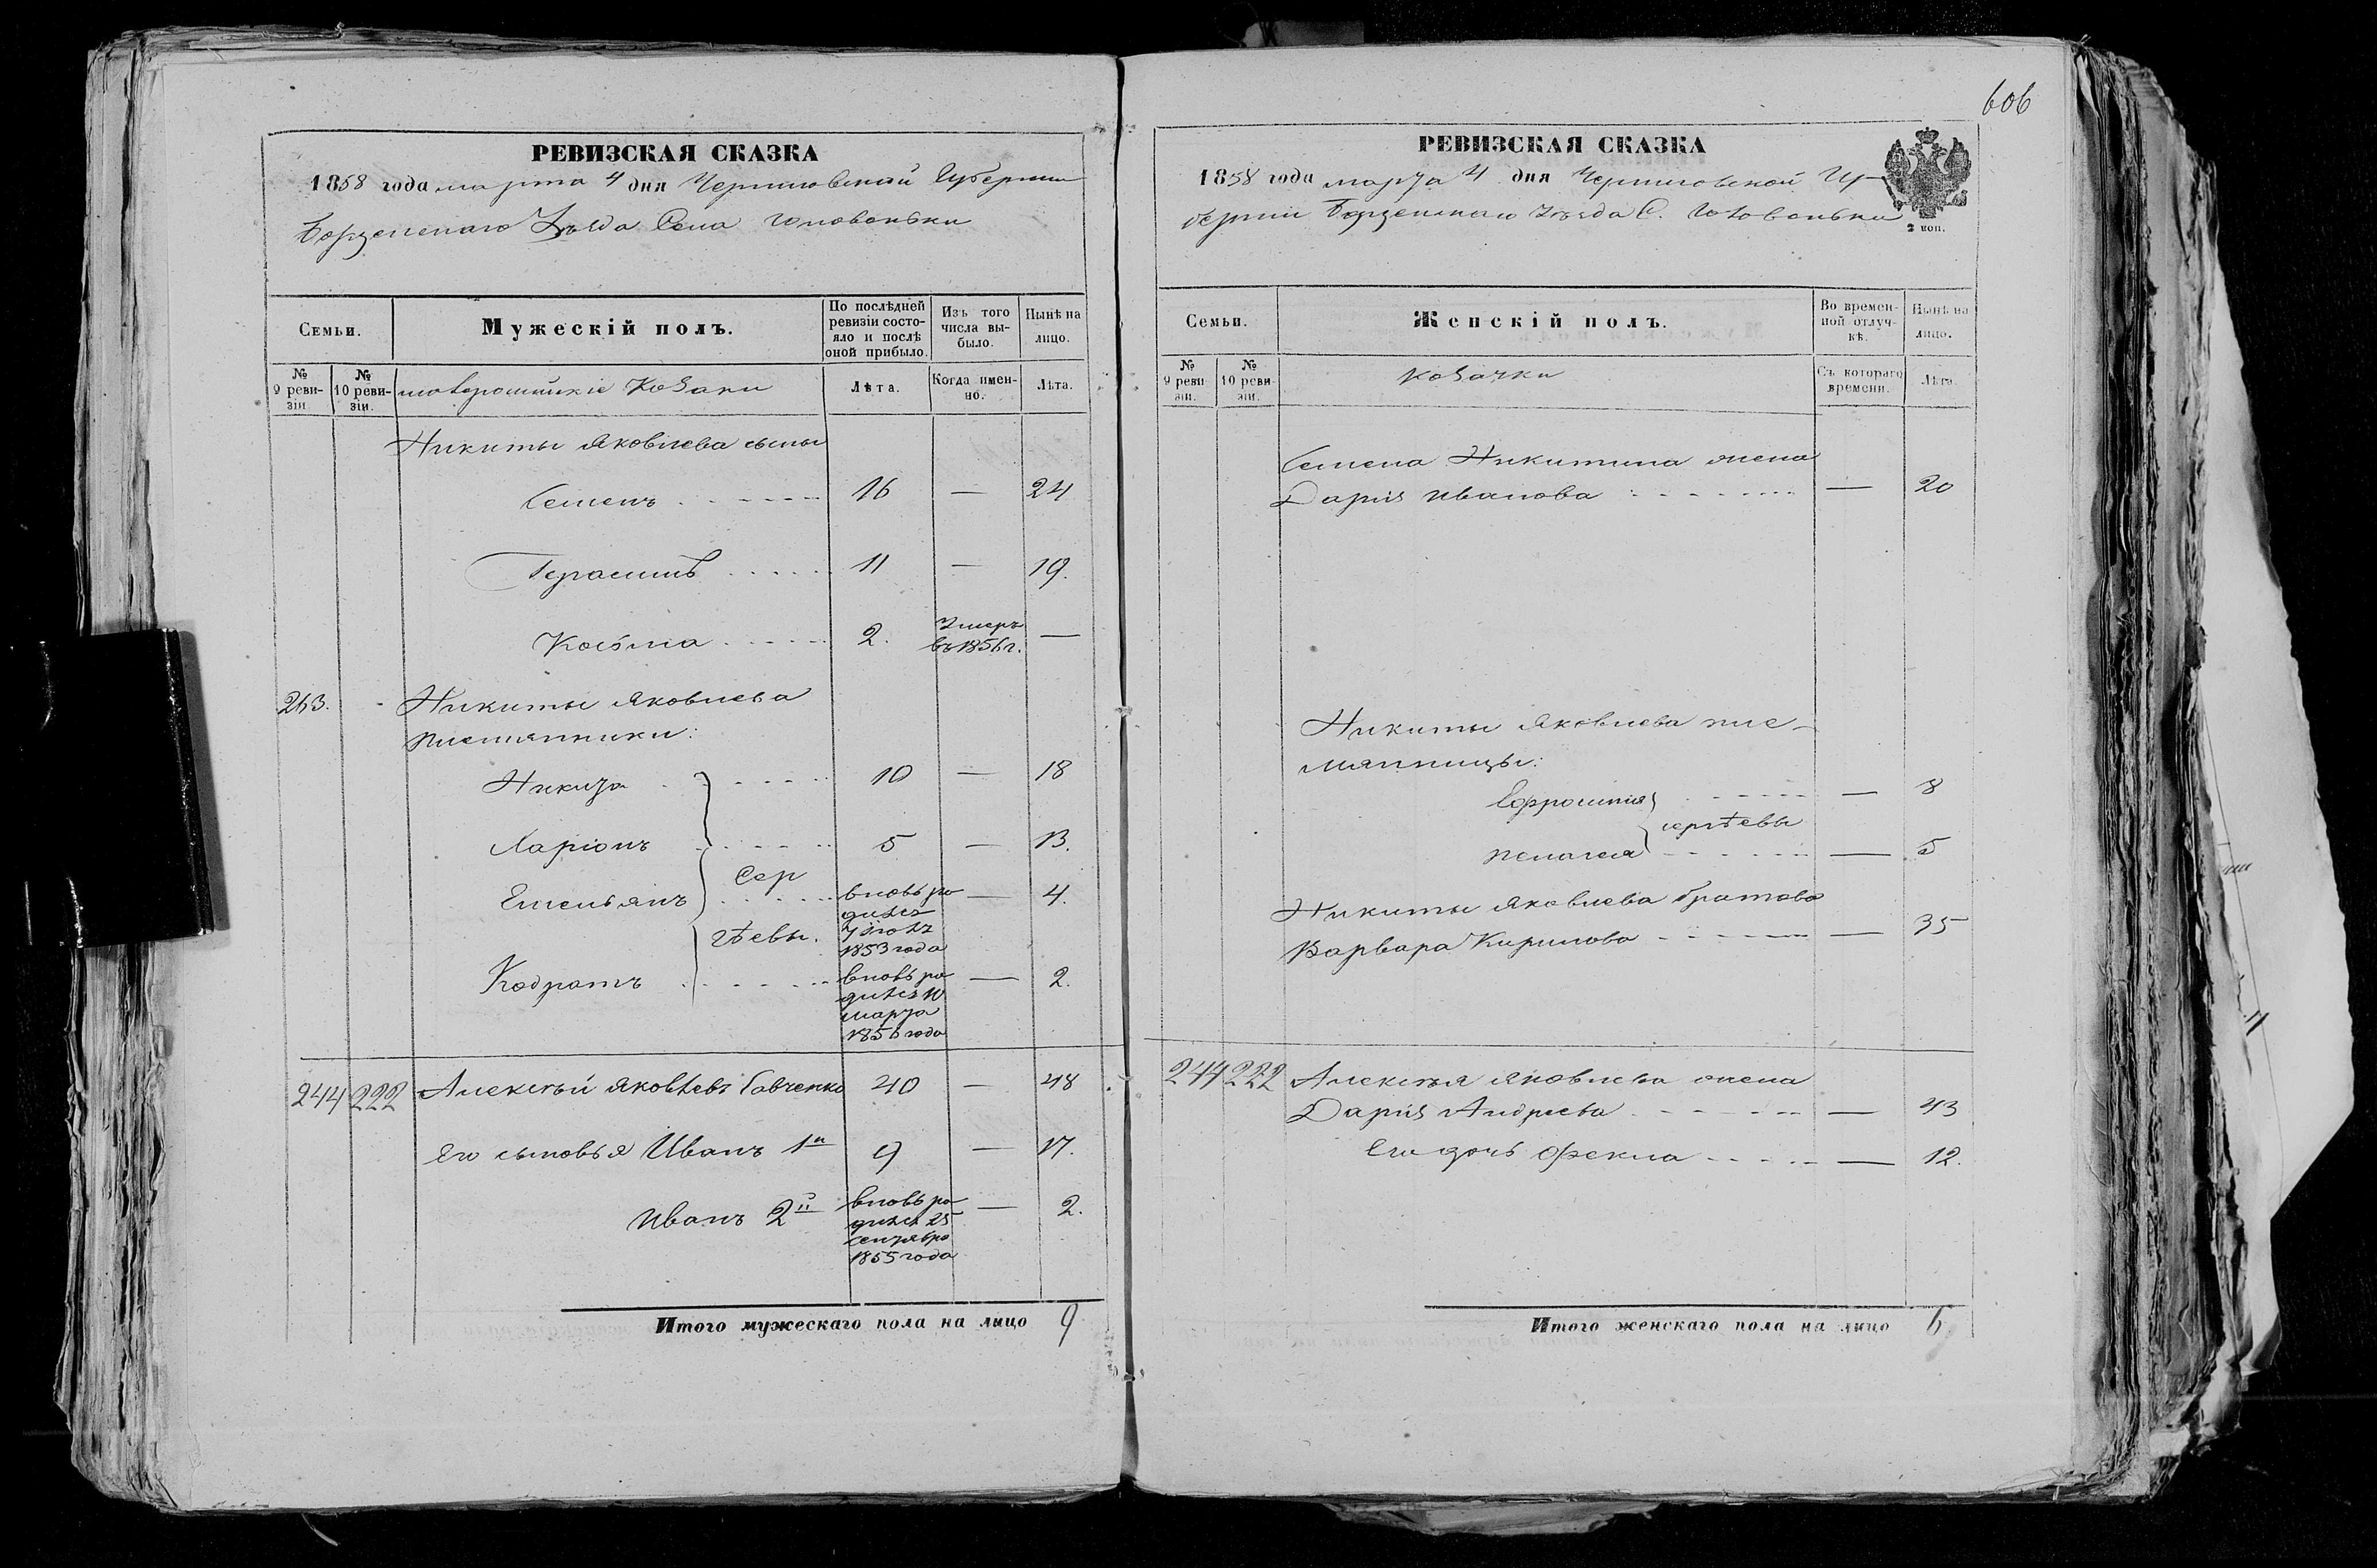 606
РЕВИЗСКАЯ СКАЗКА
1858 года марта 4 дня Черниговской Губернии
Борзенскаго Уѣзда Села Головоньки
Семьи.
Мужескій полъ.
По послѣдней ревизіи состояло и послѣ оной прибыло.
Изъ того числа выбыло.
Нынѣ на лицо.
№ 9 ревизіи.
№ 10 ревизіи.
Малороссійскіе Козаки
Лѣта.
Когда именно.
Лѣта.
Никиты Яковлева сыны
Семенъ 16 — 24
Герасимъ 11 — 19.
Косьма 2. Умеръ въ 1856 г. —
243. Никиты Яковлева
племянники:
Никита 10 — 18
Ларіонъ 5 — 13.
Сер
Емельянъ вновь ро — 4.
дился
1853 года
гѣевы.
Кодратъ вновь ро — 2.
дился 10
марта
1856 года
244 222 Алексѣй Яковлевъ Савченко 40 — 48
Его сыновья Иванъ 1й 9 — 17.
Иванъ 2й вновь ро — 2.
дился 25
сентября
1855 года
Итого мужескаго пола на лицо 9
РЕВИЗСКАЯ СКАЗКА
1858 года марта 4 дня Черниговской Гу-
берніи Борзенскаго Уѣзда С. Головоньки
2 коп.
Семьи.
Женскій полъ.
Во временной отлучкѣ.
Нынѣ на лицо.
№ 9 ревизіи.
№ 10 ревизіи.
Козачки
Съ котораго времени.
Лѣта.
Семена Никитина жена
Дарія Иванова — 20
Никиты Яковлева пле-
мянницы:
Ефросинія — 8
Сергѣевы
Пелагея — 5
Никиты Яковлева братова
Варвара Кирилова — 35
244 222 Алексѣя Яковлева жена
Дарія Андреева — 43
Его дочь Фекла — 12.
Итого женскаго пола на лицо 6